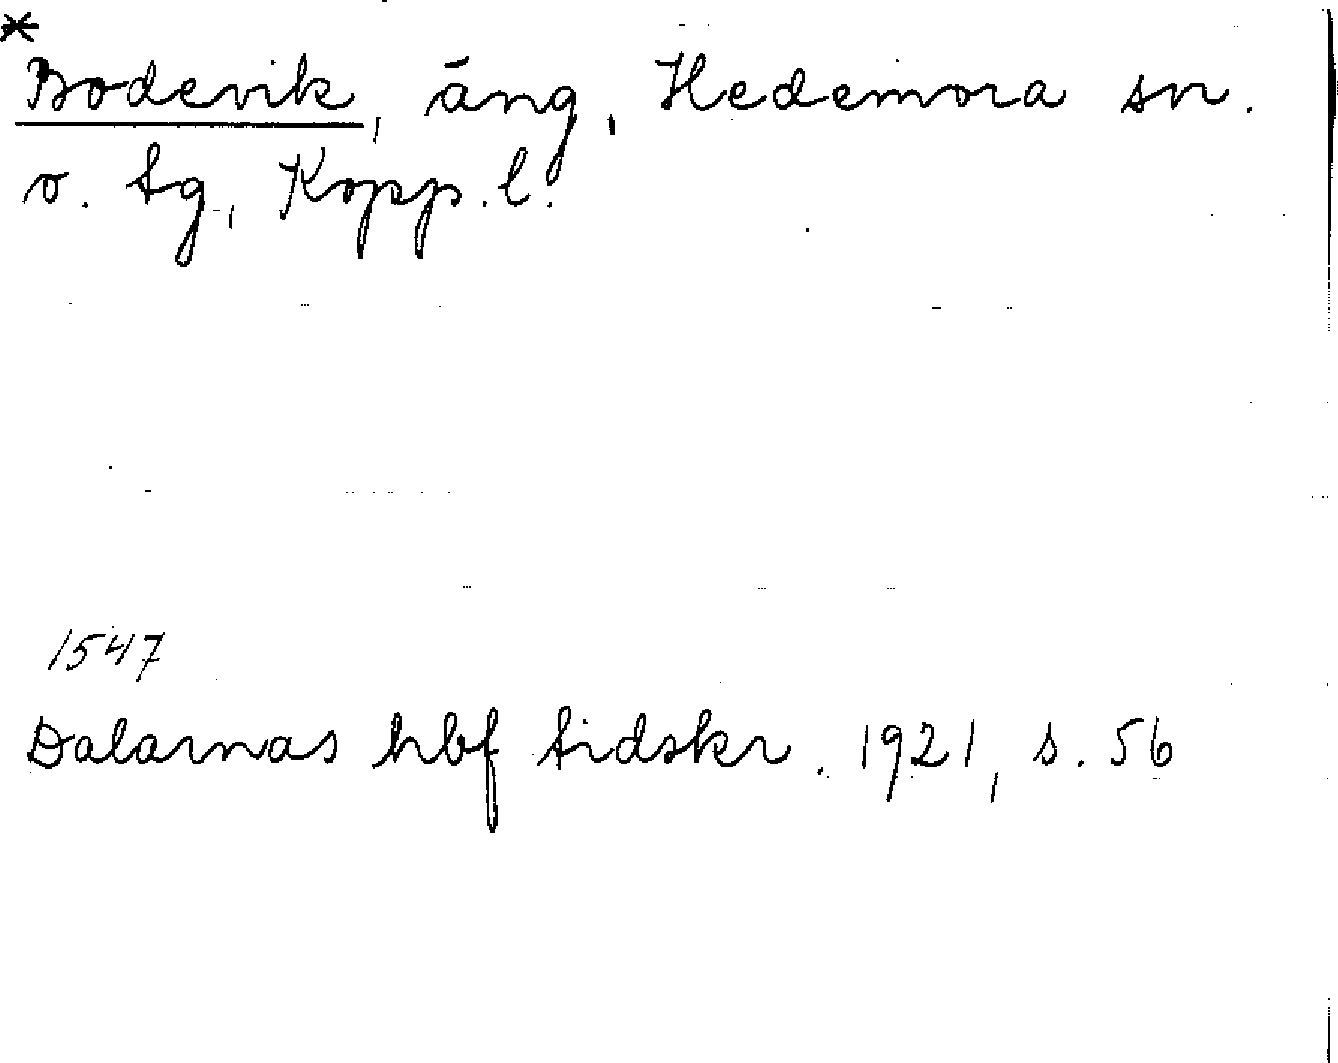 *
Bodevik, äng, Hedemora sn.
o. tg, Kopp. l.
1547
Dalarnas hbf tidskr. 1921, s. 56